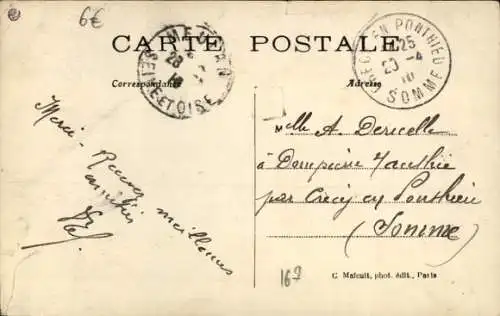 6€
CARTE POSTALE
Correspondance
Adresse
MEUDON
SEINE ET OISE
CRECY EN PONTHIEU
SOMME
Merci - Reçevez
meilleures
amitiés
Mlle A. Dericelle
à Dompierre
par Crécy en Ponthieu
(Somme)
167
C. Malcuit, phot. édit., Paris